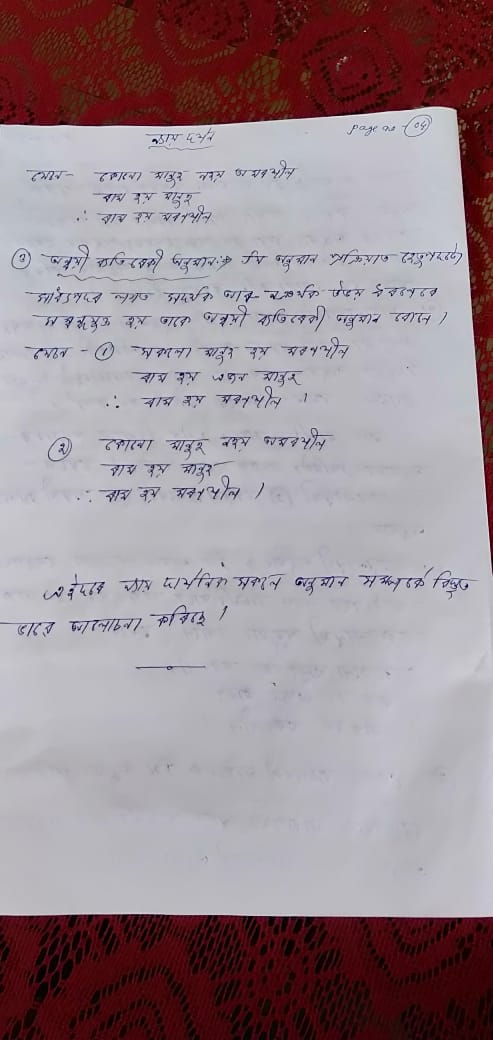 ন্যায় দৰ্শন
page no - 04
যেনে - কোনো মানুহ নহয় অমৰণশীল
ৰাম হয় মানুহ
∴ ৰাম হয় মৰণশীল
③ অন্বয়ী ব্যতিৰেকী অনুমান:⇒ যি অনুমান প্ৰক্ৰিয়াত হেতুপদটো
সাধ্যপদৰ লগত সদৰ্থক আৰু নঞৰ্থক উভয় ধৰণেৰে
সম্বন্ধযুক্ত হয় তাকে অন্বয়ী ব্যতিৰেকী অনুমান বোলে।
যেনে - ① সকলো মানুহ হয় মৰণশীল
ৰাম হয় এজন মানুহ
∴ ৰাম হয় মৰণশীল ।
② কোনো মানুহ নহয় অমৰণশীল
ৰাম হয় মানুহ
∴ ৰাম হয় মৰণশীল ।
এইদৰে ন্যায় দাৰ্শনিক সকলে অনুমান সম্পৰ্কে বিস্তৃত
ভাৱে আলোচনা কৰিছে।